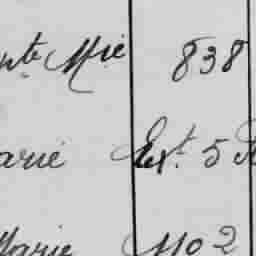 nte Mie 838
arie Ext. 5 R
Marie 1102